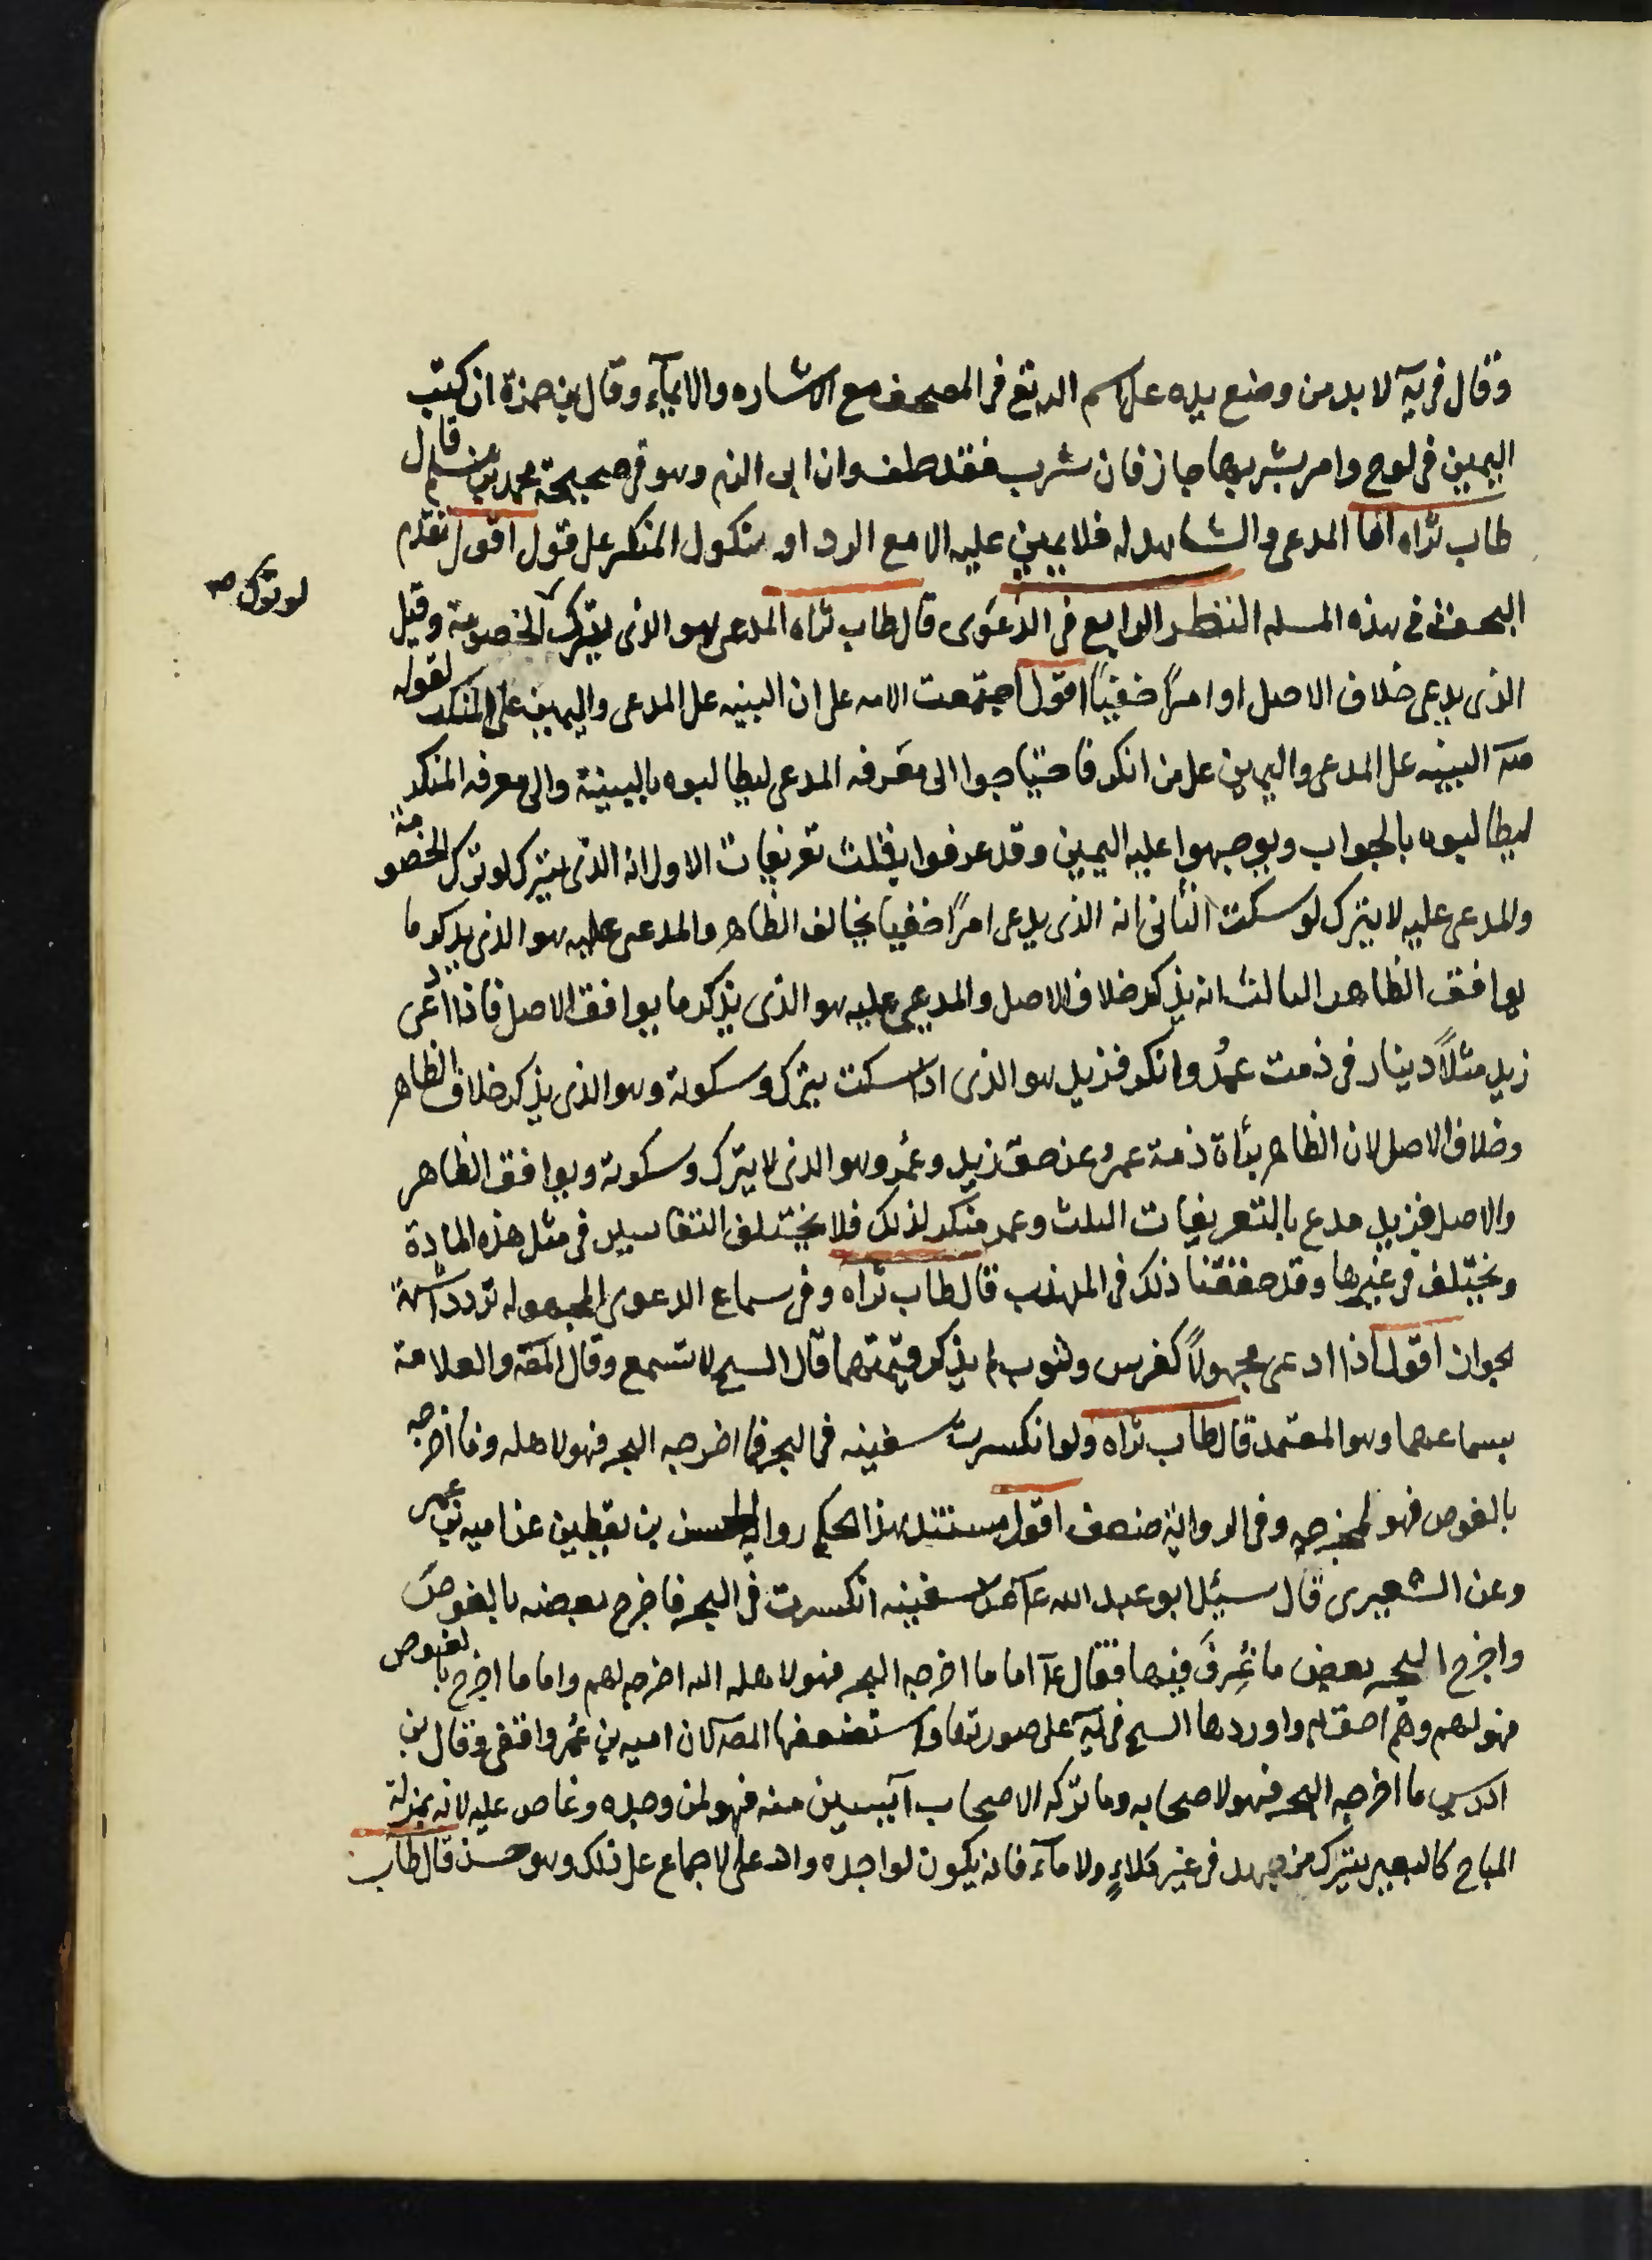 وقال فى يه لا بد من وضع يده على اسم الله تع فى المصحف مع الاشاره والايماء وقال بن حمزة ان كتب
اليمين فى لوح وامر بشربها جاز فان شرب فقد حلف وان ابى الزم وهو فى صحيحة محمد بن مسلم قال
طاب ثراه اما المدعى والشاهد له فلا يمين عليه الا مع الرد او نكول المنكر على قول اقول تقدم
البحث فى هذه المسله النظر الرابع فى الدعوى قال طاب ثراه المدعى هو الذى يترك الخصومة وقيل
لو ترك صح
الذى يدعى خلاف الاصل او امراً خفياً اقول اجتمعت الامه على ان البينه على المدعى واليمين على المنكر لقوله
صه البينه على المدعى واليمين على من انكر فاحتياجوا الى معرفه المدعى ليطالبوه بالبينة والى معرفه المنكر
ليطالبوه بالجواب ويوجهوا عليه اليمين وقد عرفوا بثلث تعريفات الاول انه الذى يترك لو ترك الخصومة
والمدعى عليه لا يترك لو سكت الثانى انه الذى يدعى امراً خفيا يخالف الظاهر والمدعى عليه هو الذى يذكر ما
يوافق الظاهر الثالث انه يذكر خلاف الاصل والمدعى عليه هو الذى يذكر ما يوافق الاصل فاذا ادعى
زيد مثلاً دينار فى ذمت عمرو وانكر فزيد هو الذى اذا سكت يترك وسكوته وهو الذى يذكر خلاف الظاهر
وخلاف الاصل لان الظاهر براة ذمة عمرو عن حق زيد وعمرو هو الذى لا يترك وسكوته ويوافق الظاهر
والاصل فزيد مدع بالتعريفات الثلث وعمر منكر لذلك فلا يختلف التفاسير فى مثل هذه المادة
ويختلف فى غيرها وقد حققنا ذلك فى المهذب قال طاب ثراه وفى سماع الدعوى المجهوله تردد اشبهه
الجواز اقول اذا ادعى مجهولاً كفرس وثوب لم يذكر قيمتهما قال الشيخ لا تسمع وقال المصه والعلامة
بسماعهما وهو المعتمد قال طاب ثراه ولو انكسرت سفينه فى البحر فما اخرجه البحر فهو لاهله وما اخرجه
بالغوص فهو لمخرجه وفى الرواية ضعف اقول مستند هذا الحكم روايه الحسن بن يقطين عن اميه بن عمرو
وعن الشعيرى قال سئل ابو عبد الله ع عن سفينه انكسرت فى البحر فاخرج بعضه بالغوص
واخرج البحر بعض ما غرق فيها فقال ع اما ما اخرجه البحر فهو لاهله الله اخرجه لهم واما ما اخرج بالغوص
فهو لهم وهم احق به واوردها الشيخ فى يه على صورتها واستضعفها المصه لان اميه بن عمرو واقفى وقال بن
ادريس ما اخرجه البحر فهو لاصحابه وما تركه الاصحاب آيسين منه فهو لمن وجده وغاص عليه لانه بمنزلة
المباح كالبعير يترك من جهد فى غير كلاءٍ ولا ماء فانه يكون لواجده وادعى الاجماع على ذلك وهو حسن قال طاب